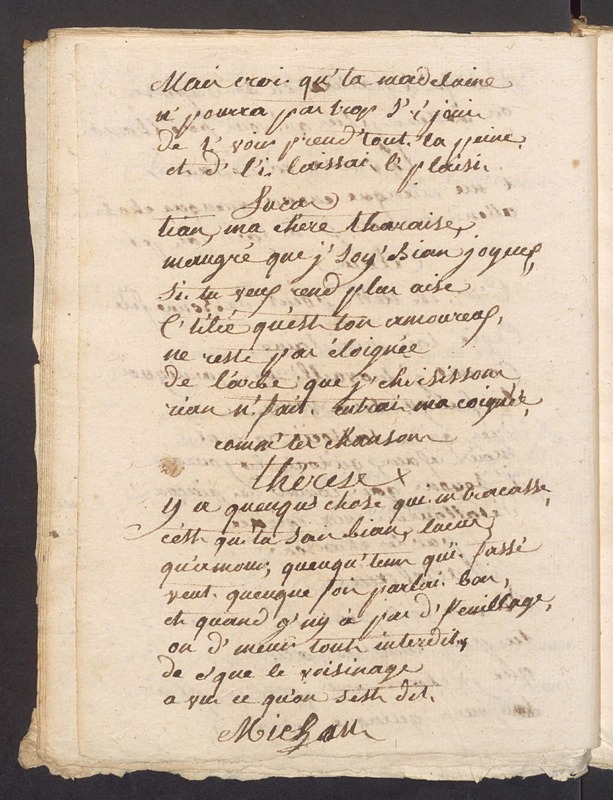 Mais croi qu'ta madelaine
n' pourra pas trop s'i join
de t' voir prend' tout la peine
et d' l'i laissai l' plaisi.
Lucas
tian, ma chere tharaise,
maugré que j' soy' bian joyeux,
si tu veux rend' plus aise
c'titié qu'est ton amoureux,
ne reste pas éloignée
de l'arbe que j' choisissons
rian n' fait entrai ma coignée
comm' tes chansons
therese
y a queuqu' chose qui m' tracasse,
c'est qu' tu sais bian, lucas,
qu'amour, queuqu' tems qu'i fasse
veut queuque fois parlai bas,
et quand g'ny a pas d' feuillage,
on d'meur' tout interdit,
de c'que le voisinage
a vu ce qu'on s'est dit.
Michau